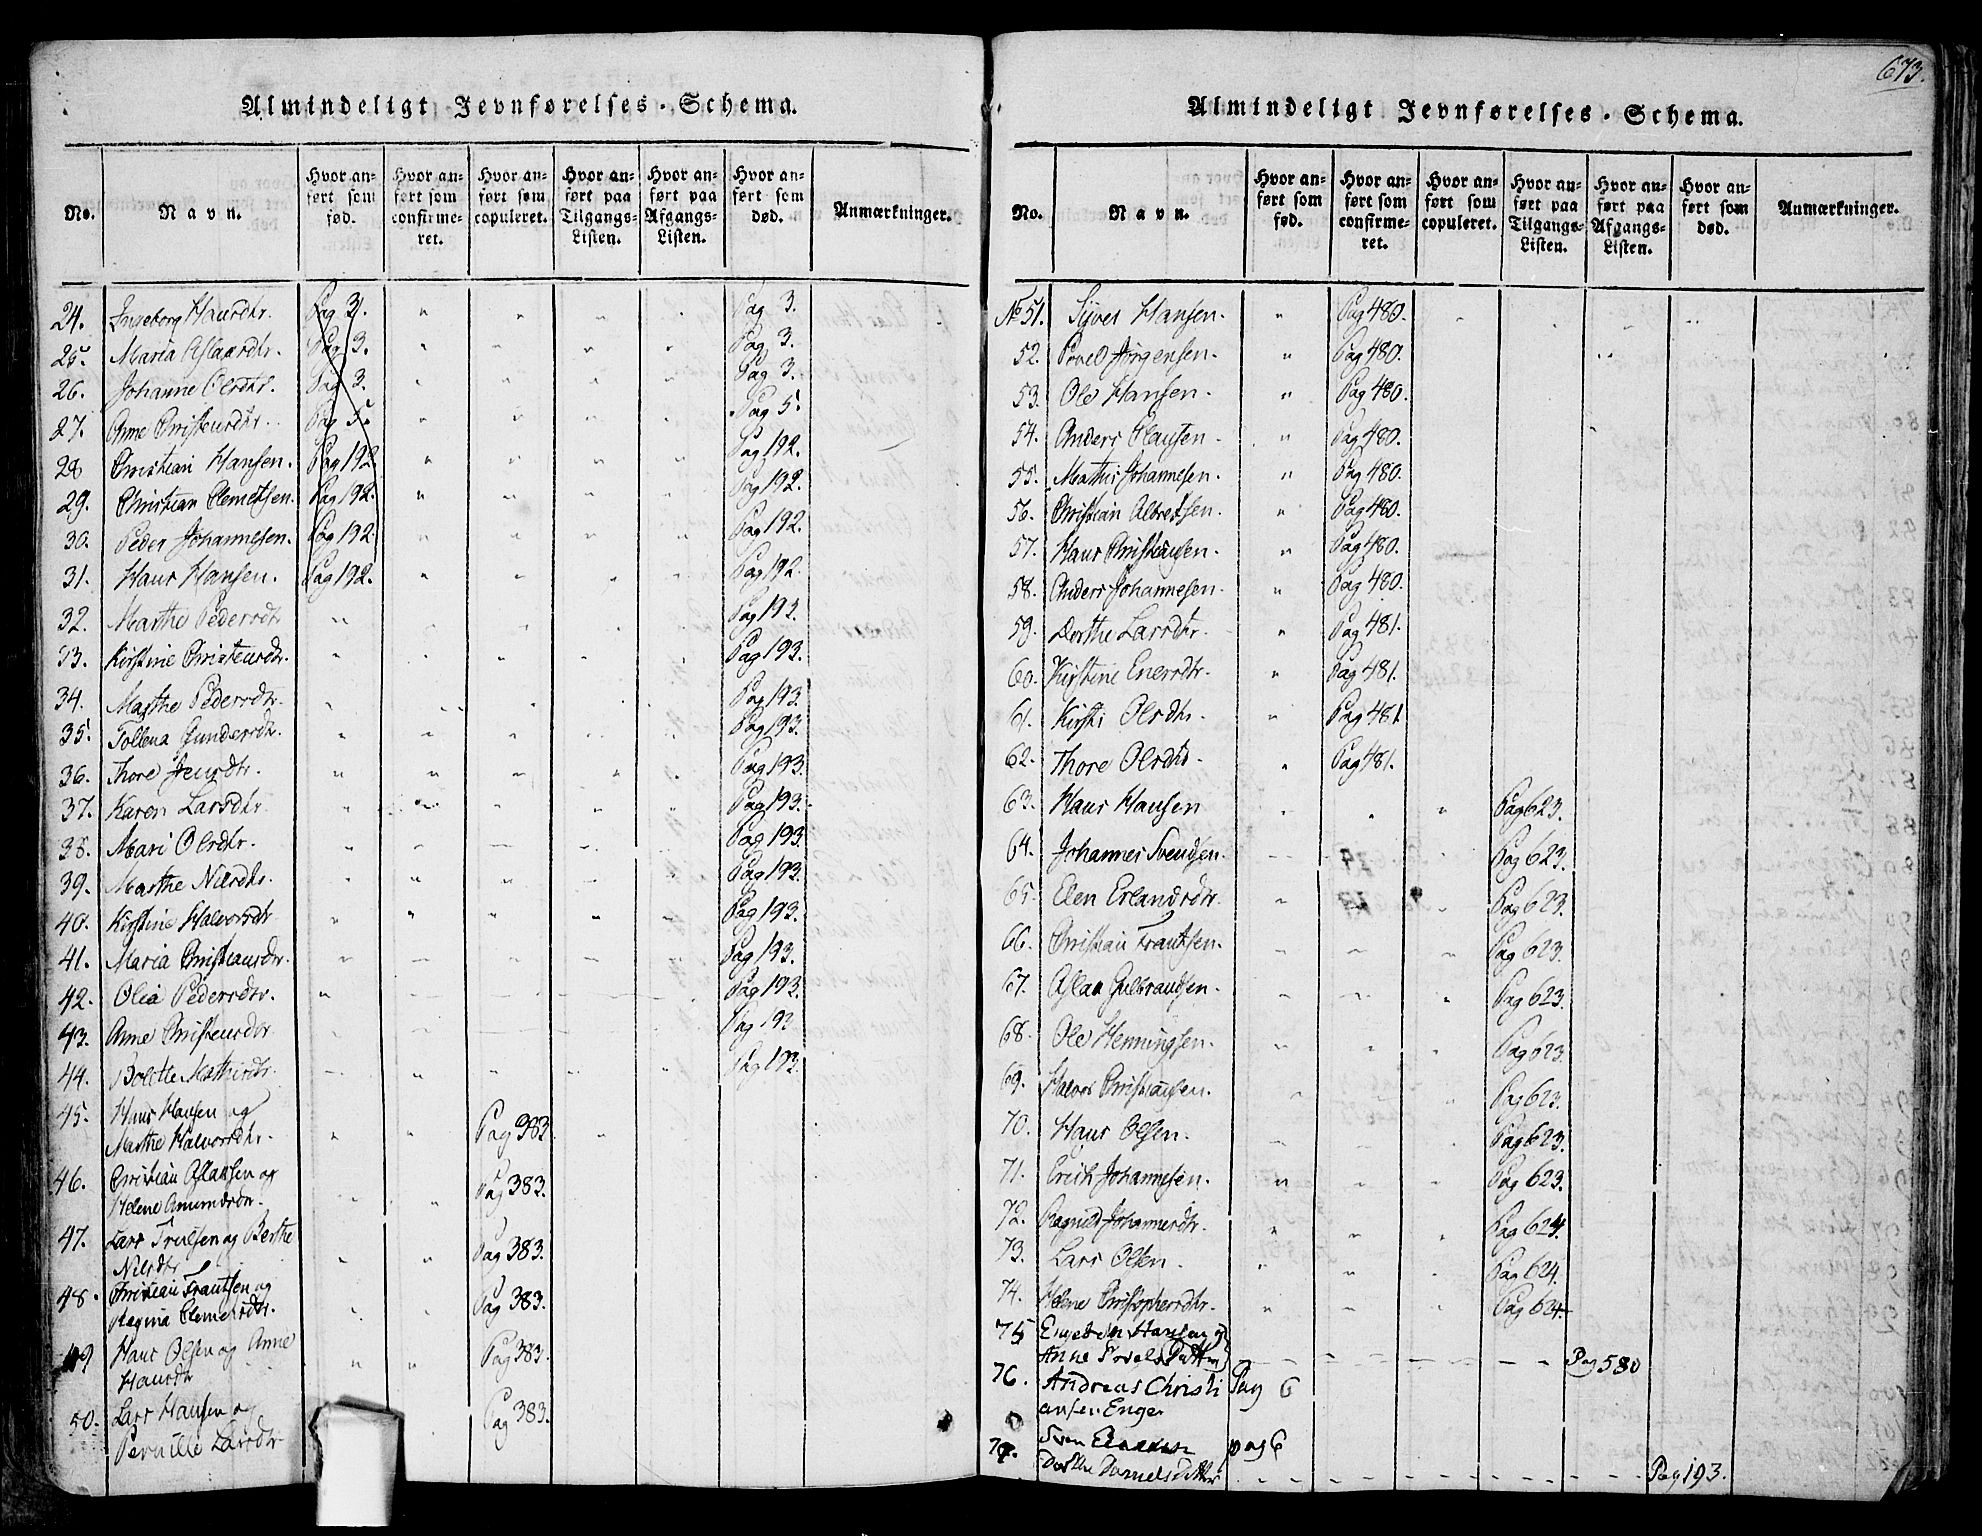 673.
Almindeligt Jevnførelses-Schema.
No.
Navn.
Hvor anført som fød.
Hvor anført som confirmeret.
Hvor anført som copuleret.
Hvor anført paa Tilgangs-Listen.
Hvor anført paa Afgangs-Listen.
Hvor anført som død.
Anmærkninger.
24. Ingeborg Hansdtr. Pag 3. " " " " " Pag 3.
25. Maria Aslaxdtr. Pag 3. " " " " " Pag 3.
26. Johanne Olsdtr. Pag 3. " " " " " Pag 3.
27. Anne Christensdtr. Pag 5. " " " " " Pag 5.
28 Christian Hansen. Pag 192. " " " " " Pag 192.
29. Christian Clemetsen. Pag 192. " " " " " Pag 192.
30. Peder Johannesen. Pag 192 " " " " " Pag 192.
31. Hans Hansen. Pag 192. " " " " " Pag 192.
32. Marthe Pedersdtr " " " " " Pag 192.
33. Kirstine Christensdtr. " " " " " Pag 193.
34. Marthe Pedersdtr. " " " " " Pag 193.
35. Tollena Gundersdtr. " " " " " Pag 193.
36. Thore Jensdtr. " " " " " Pag 193.
37. Karen Larsdtr. " " " " " Pag 193.
38. Mari Olsdtr. " " " " " Pag 193.
39. Marthe Nilsdtr. " " " " " Pag 193.
40. Kirstine Halvorsdtr " " " " " Pag 193.
41. Maria Christiansdtr. " " " " " Pag 193.
42. Olia Pedersdtr. " " " " " Pag 193.
43. Anne Christensdtr " " " " " Pag 193
44. Bolette Mathisdtr. " " " " " Pag 193.
45. Hans Hansen og
Marthe Halvorsdtr. " " Pag 383. "
46. Christian Aslaksen og
Helene Amundsdtr. " " Pag 383.
47. Lars Trulsen og Berthe
Nilsdtr " " Pag 383.
48. Christian Frantsen og
Regina Clemetsdtr. " " Pag 383.
49 Hans Olsen og Anne
Hansdtr " " Pag 383.
50. Lars Hansen og
Pernille Larsdtr Pag 383.
Almindeligt Jevnførelses-Schema.
No.
Navn.
Hvor anført som fød.
Hvor anført som confirmeret.
Hvor anført som copuleret.
Hvor anført paa Tilgangs-Listen.
Hvor anført paa Afgangs-Listen.
Hvor anført som død.
Anmærkninger.
No 51. Syver Hansen. " Pag 480.
52. Povel Jørgensen. " Pag 480.
53. Ole Hansen. " Pag 480.
54. Anders Clausen. " Pag 480.
55. Mathis Johannesen. " Pag 480.
56. Christian Albretsen. " Pag 480.
57. Hans Christiansen. " Pag 480.
58. Anders Johannesen. " Pag 480.
59. Dorthe Larsdtr. " Pag 481.
60. Kirstine Enersdtr. " Pag 481.
61. Kirsti Olsdtr. " Pag 481
62. Thore Olsdtr. " Pag 481.
63. Hans Hansen " " " Pag 623.
64. Johannes Svendsen. " " Pag 623.
65. Elen Erlandsdtr. " " Pag 623.
66. Christian Frantsen. " " " Pag 623.
67. Aslak Gulbrandsen. " " " Pag 623.
68. Ole Henningsen. " " " Pag 623.
69. Halvor Christiansen. " " Pag 623.
70. Hans Olsen. " " " Pag 623.
71. Erich Johannesen. " " " Pag 623.
72. Ragnild Johannesdtr. " " " Pag 624.
73. Lars Olsen. " " " Pag 624.
74. Helene Christophersdtr. " " " Pag 624
75 Engebret Hansen og
Anne Povels Datter - - - - Pag 580
76. Andreas Christi Pag 6
ansen Enger
Sven pag 6
77. Dorthe Daniels Datter - - - - - Pag 193.